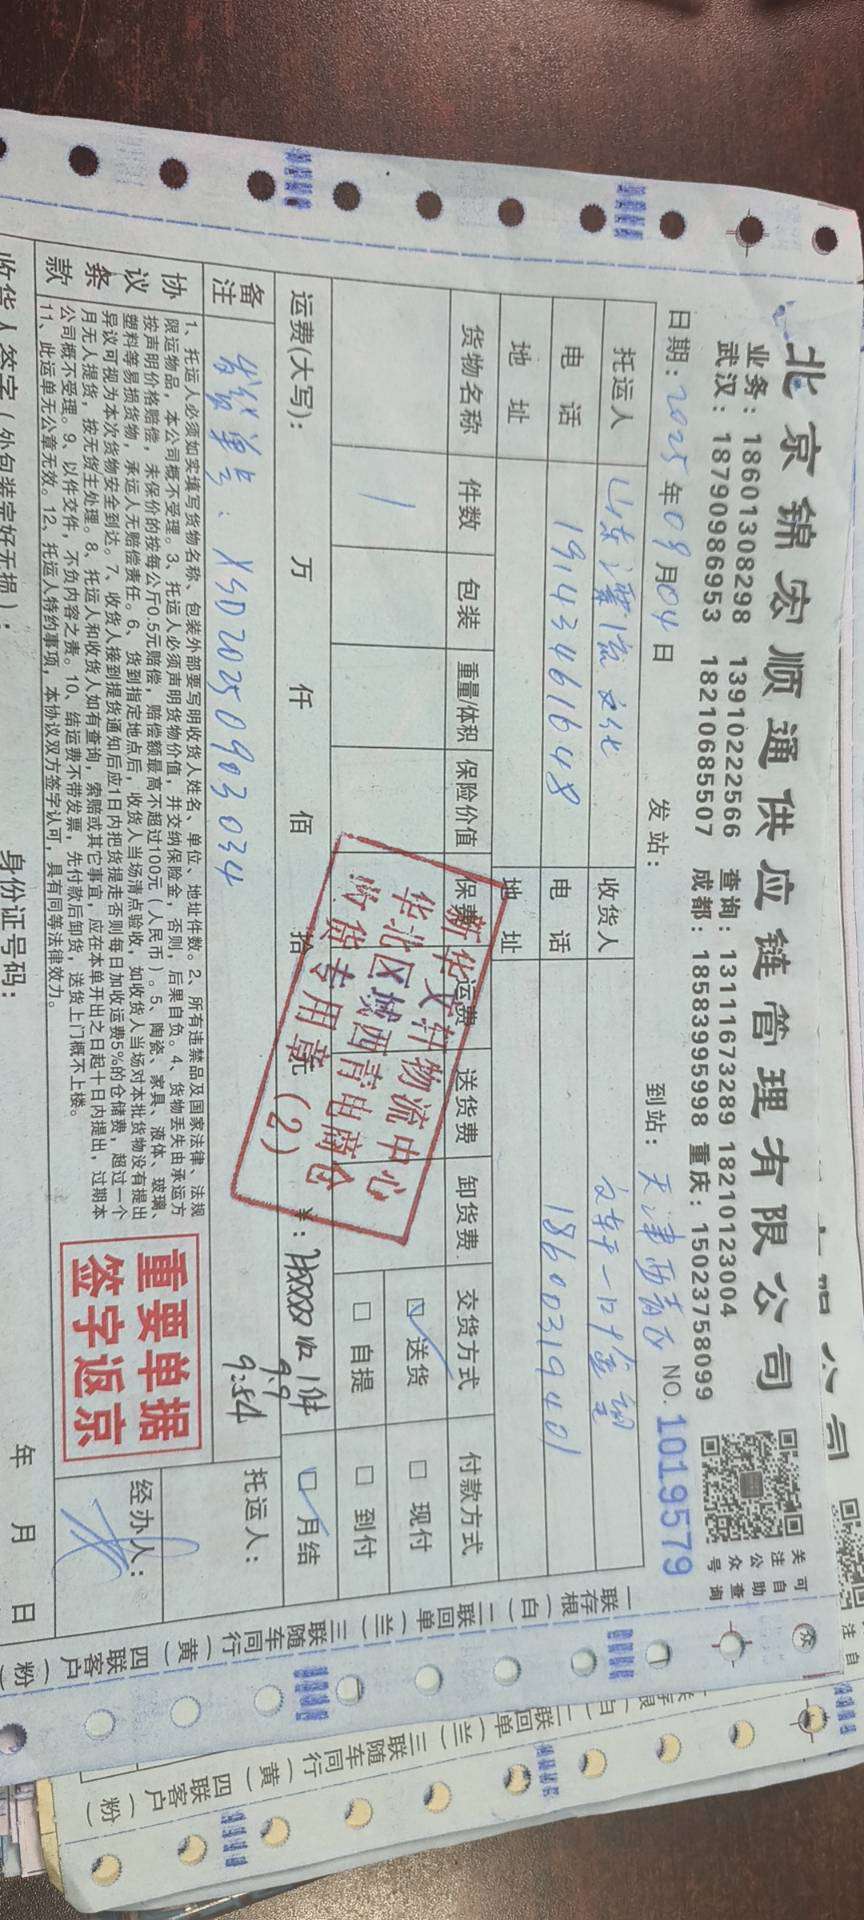 北京锦宏顺通供应链管理有限公司
业务：18601308298 13910222566 查询：13111673289 18210123004
武汉：18790986953 18210685507 成都：18583995998 重庆：15023758099
关注公众号
可自助查询
日期：2025年09月04日 发站： 到站：天津西青 NO.1019579
托运人 山东 文化 收货人 文轩
电话 19143461648 电话 18600319401
地址 地址
货物名称 件数 包装 重量/体积 保险价值 保费 运费 送货费 卸货费 交货方式 付款方式
1 送货 现付
自提 到付
运费(大写)： 万 仟 佰 拾 元 ¥： 收1件 月结
9.9
9:54
新华文轩物流中心
华北区域西青电商仓
收货专用章（2）
备注 单号：XSD20250903034
托运人：
协议条款
1、托运人必须如实填写货物名称、包装外部要写明收货人姓名、单位、地址件数。2、所有违禁品及国家法律、法规
限运物品，本公司概不受理。3、托运人必须声明货物价值，并交纳保险金，否则，后果自负。4、货物丢失由承运方
按声明价格赔偿，未保价的按每公斤0.5元赔偿，赔偿额最高不超过100元（人民币）。5、陶瓷、家具、液体、玻璃、
塑料等易损货物，承运人无赔偿责任。6、货到指定地点后，收货人当场清点验收，如收货人当场对本批货物没有提出
异议可视为本次货物安全到达。7、收货人接到提货通知后应1日内把货提走否则每日加收运费5%的仓储费，超过一个
月无人提货，按无货主处理。8、托运人和收货人如有查询，索赔或其它事宜，应在本单开出之日起十日内提出，过期本
公司概不受理。9、以件交件，不负内容之责。10、结运费不带发票，先付款后卸货，送货上门概不上楼。
11、此运单无公章无效。12、托运人特约事项，本协议双方签字认可，具有同等法律效力。
重要单据
签字返京
经办人：
收货人签字（外包装完好无损）： 身份证号码： 年 月 日
一联存根（白）二联回单（兰）三联随车同行（黄）四联客户（粉）
公司
二联回单（兰）三联随车同行（黄）四联客户（粉）